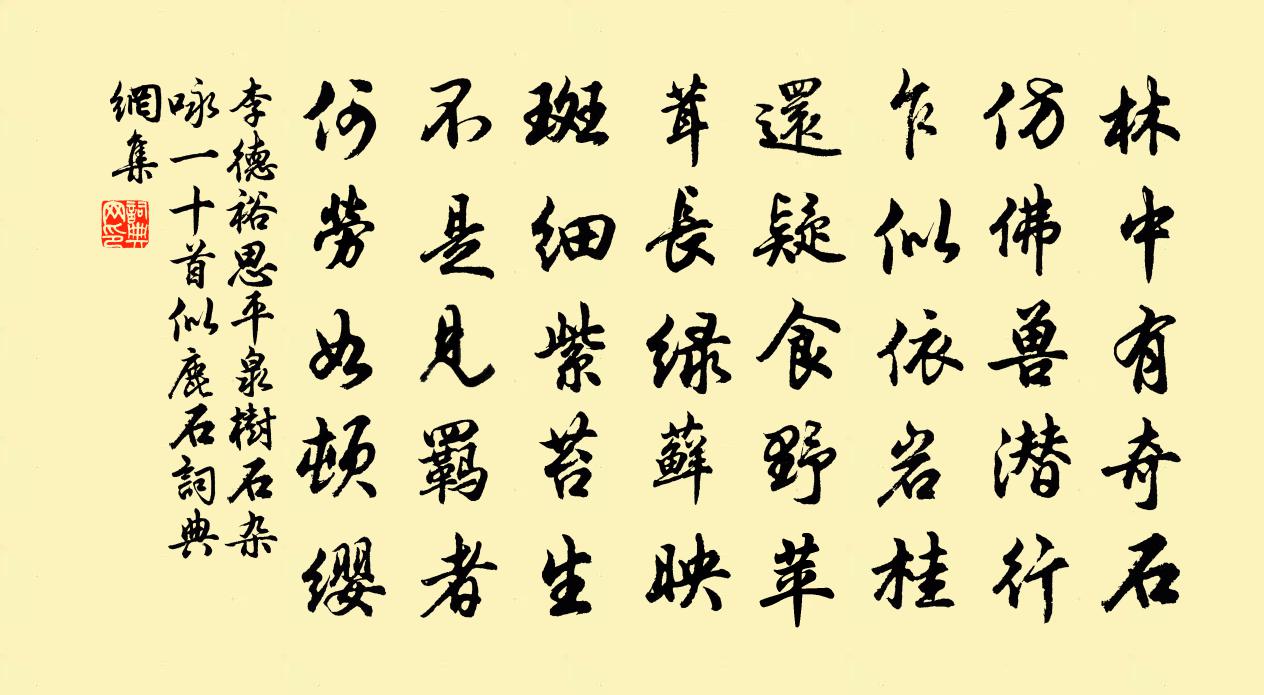 林中有奇石
仿佛兽潜行
乍似依岩桂
還疑食野苹
茸長绿蘚映
斑细紫苔生
不是見羁者
何勞如顿缨
李德裕思平泉樹石杂
咏一十首似鹿石詞典
網集
詞典
网印